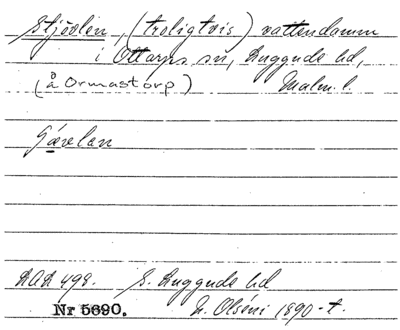 Stjëvlen, (troligtvis) vattendamm
i Ottarps sn, Luggude hd,
(å Ormastorp) Malm. l.
Gävelan
LAL 498. S. Luggude hd
Nr 5690. N. Olséni 1890-t.